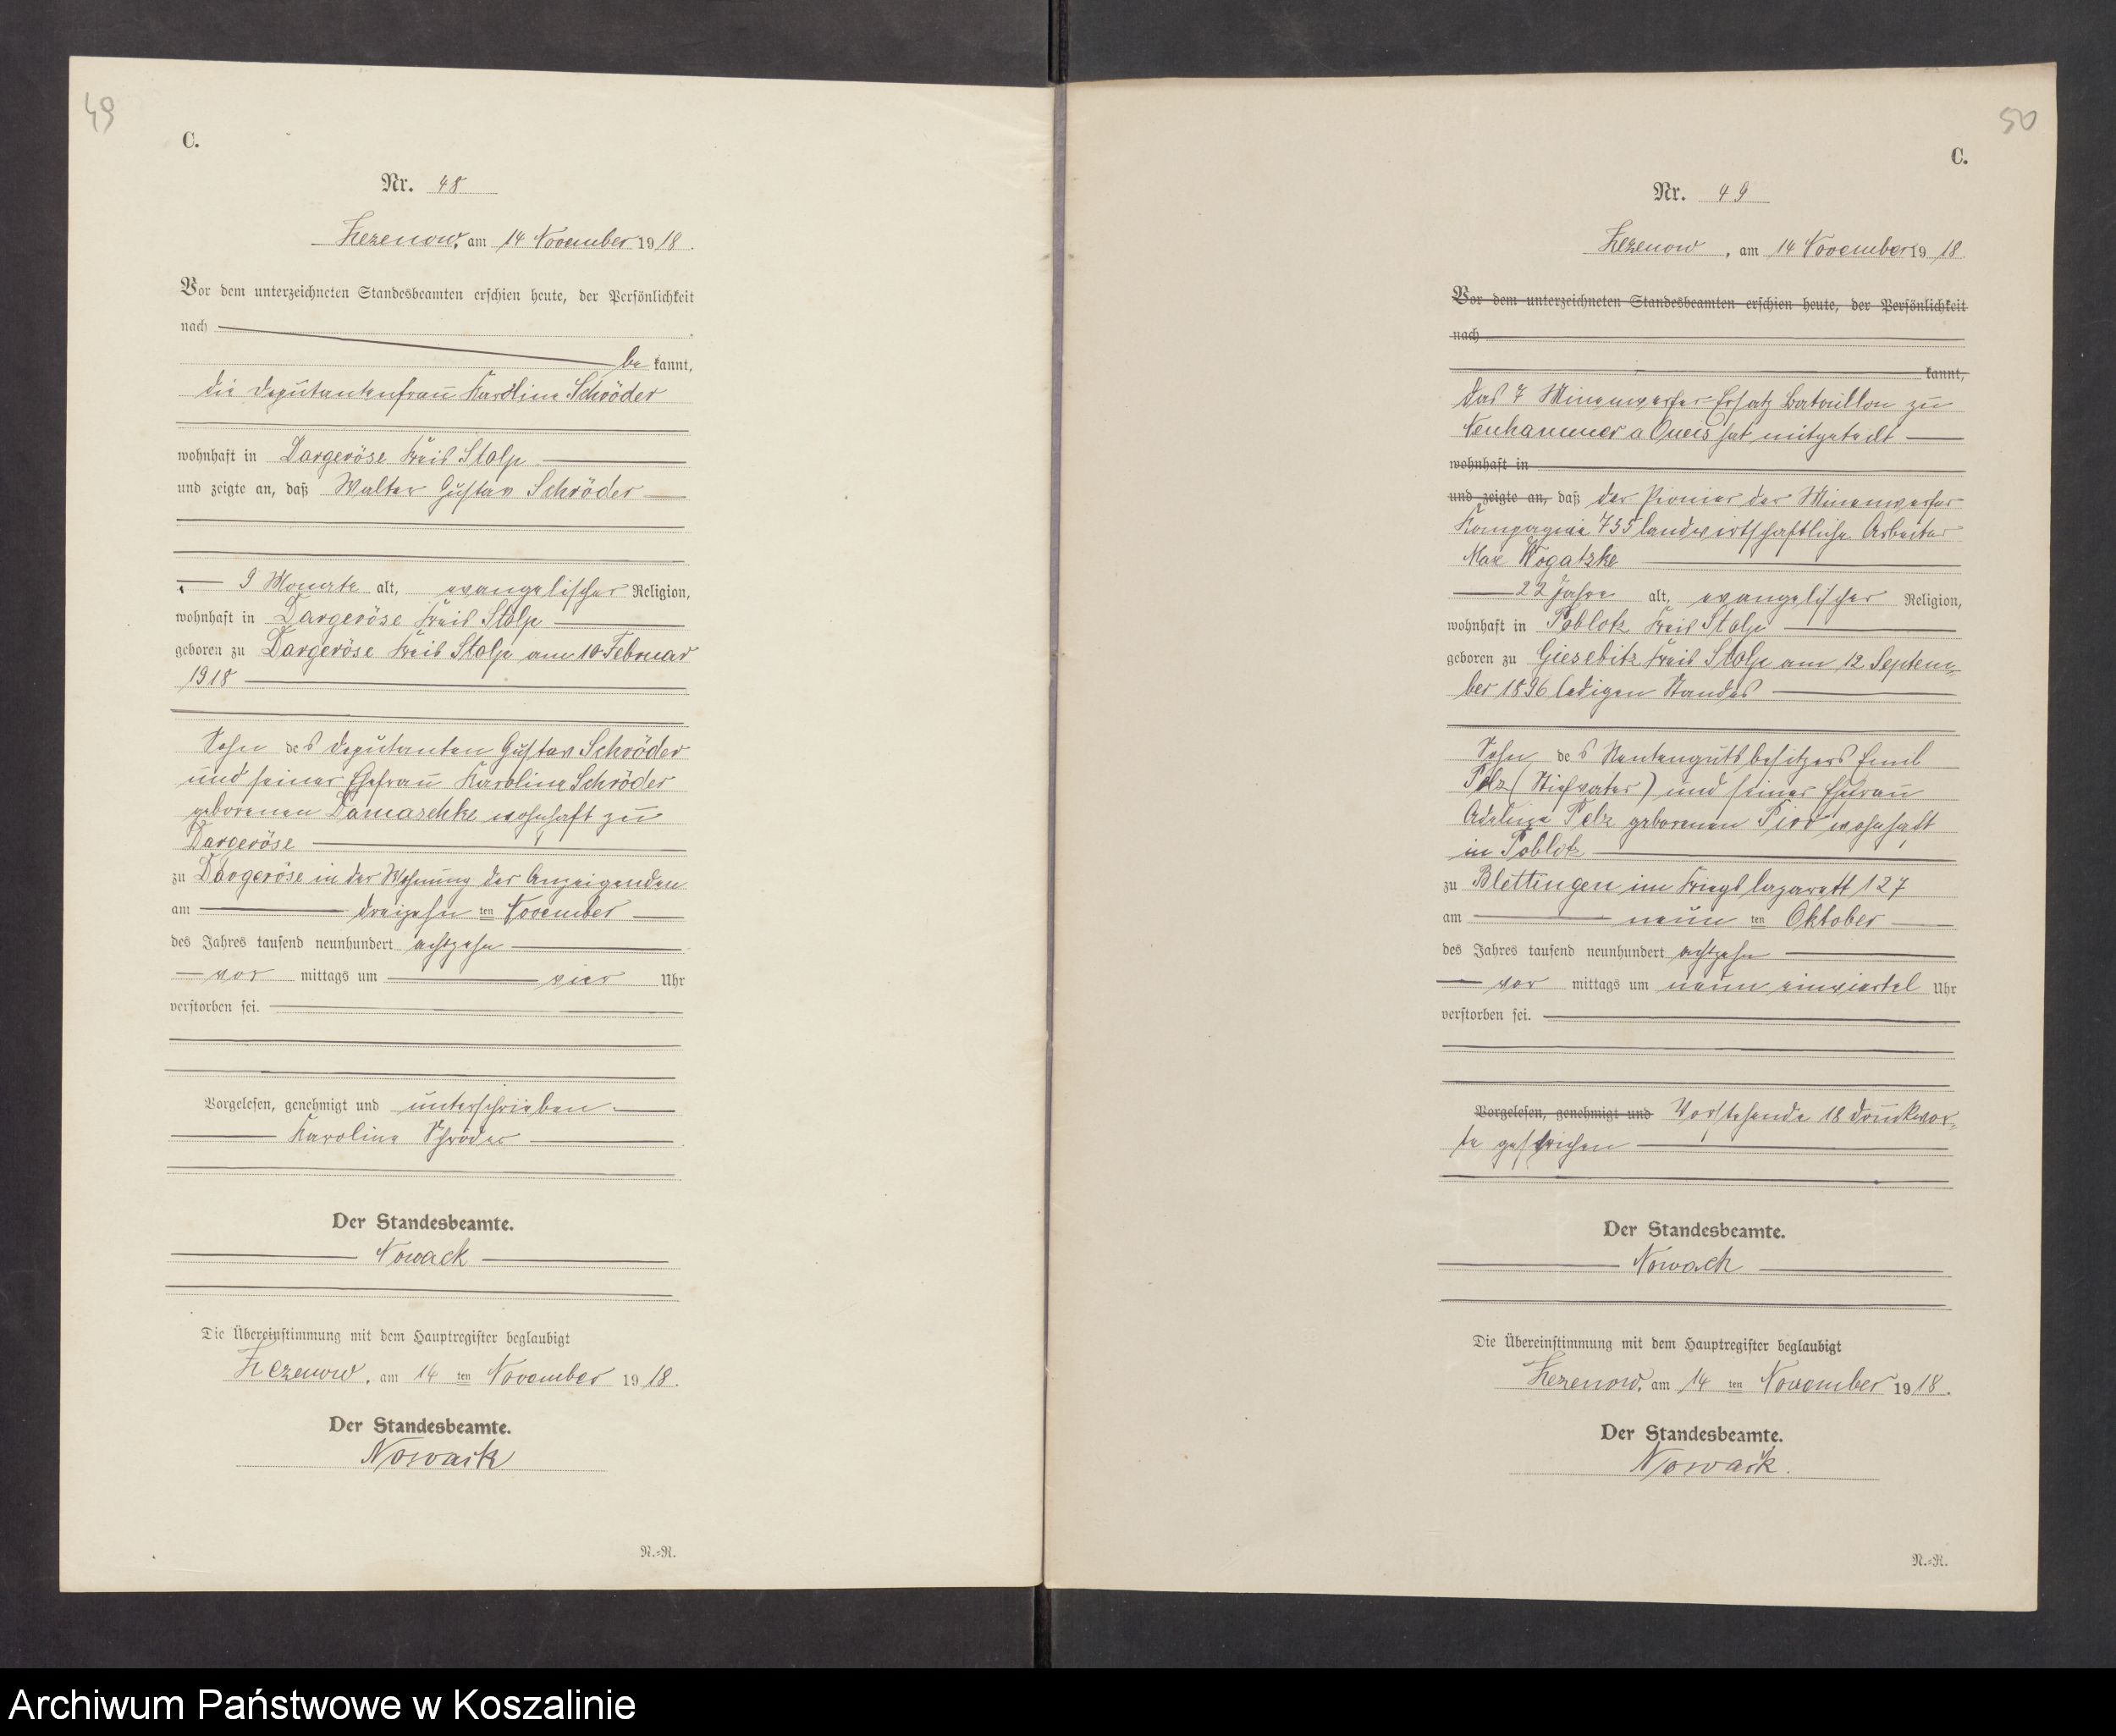 49
C.
Nr. 48
Zezenow, am 14 November 1918.
Vor dem unterzeichneten Standesbeamten erschien heute, der Persönlichkeit
nach
be kannt,
die Deputantenfrau Karoline Schröder
wohnhaft in Dargeröse Kreis Stolp
und zeigte an, daß Walter Gustav Schröder
9 Monate alt, evangelischer Religion,
wohnhaft in Dargeröse Kreis Stolp
geboren zu Dargeröse Kreis Stolp am 10 Februar
1918
Sohn des Deputanten Gustav Schröder
und seiner Ehefrau Karoline Schröder
geborenen Damaschke wohnhaft zu
Dargeröse
zu Dargeröse in der Wohnung der Anzeigenden
am dreizehn ten November
des Jahres tausend neunhundert achtzehn
vor mittags um vier Uhr
verstorben sei.
Vorgelesen, genehmigt und unterschrieben
Karoline Schröder
Der Standesbeamte.
Nowack
Die Übereinstimmung mit dem Hauptregister beglaubigt
Zezenow, am 14 ten November 1918.
Der Standesbeamte.
Nowack
N.=R.
50
C.
Nr. 49
Zezenow, am 14 November 1918
Vor dem unterzeichneten Standesbeamten erschien heute, der Persönlichkeit
nach
kannt,
Das 7 Minenwerfer Ersatz Bataillon zu
Neuhammer a Queis hat mitgeteilt
wohnhaft in
und zeigte an, daß der Pionier der Minenwerfer
Kompagnie 735 landwirtschaftliche Arbeiter
Max Wogatzke
22 Jahre alt, evangelischer Religion,
wohnhaft in Poblotz Kreis Stolp
geboren zu Giesebitz Kreis Stolp am 12 Septem-
ber 1896 ledigen Standes
Sohn des Rentengutsbesitzers Emil
Pelz (Stiefvater) und seiner Ehefrau
Adeline Pelz geborenen Pior wohnhaft
in Poblotz
zu Blettingen im Kriegslazarett 127
am neun ten Oktober
des Jahres tausend neunhundert achtzehn
vor mittags um neun einviertel Uhr
verstorben sei.
Vorgelesen, genehmigt und Vorstehende 18 Druckwor-
te gestrichen
Der Standesbeamte.
Nowack
Die Übereinstimmung mit dem Hauptregister beglaubigt
Zezenow, am 14 ten November 1918.
Der Standesbeamte.
Nowack.
N.=R.
Archiwum Państwowe w Koszalinie